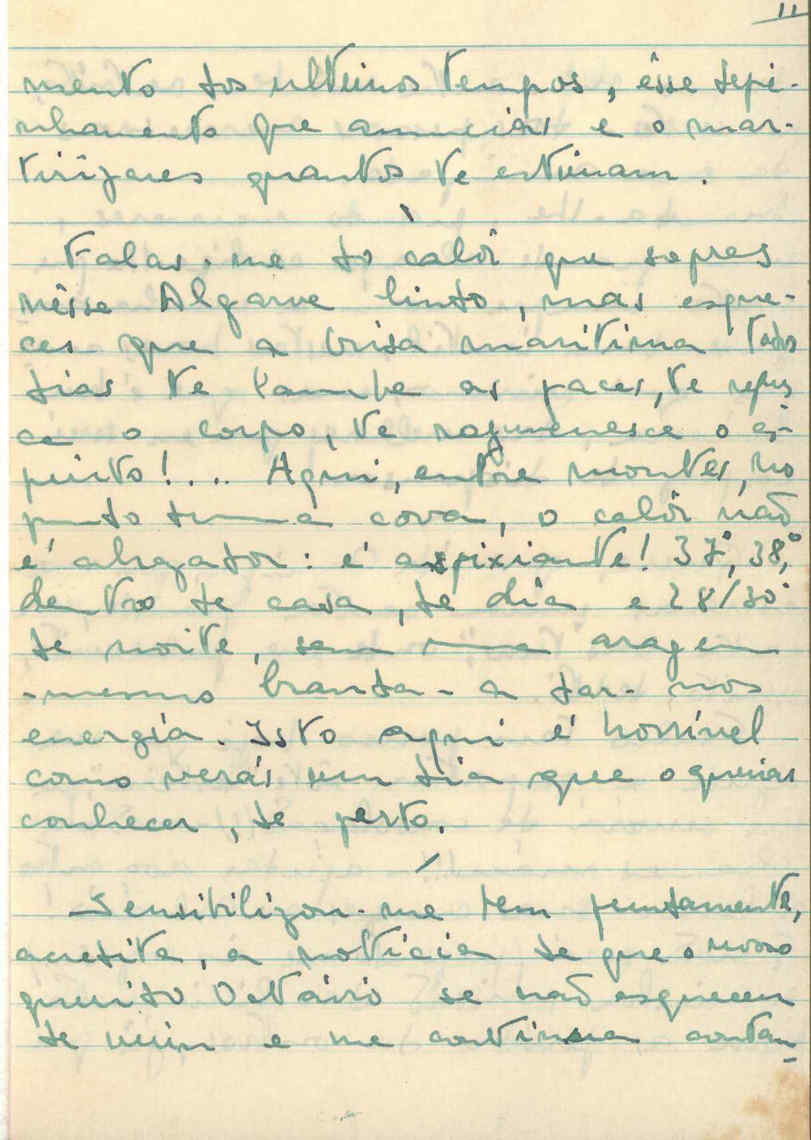 11
mento dos ultimos tempos, êsse depi-
nhamento que anuncias e o mar-
tirizares quantos te estimam.
Falas-me do calôr que sopres
nêsse Algarve lindo, mas esque-
ces que a brisa maritima todos
dias te lambe as faces, te refres
ca o corpo, te rejuvenesce o es-
pirito!.... Aqui, entre montes, no
fundo duma cova, o calôr não
é afogador: é aspixiante! 37°, 38°,
dentro de casa, de dia e 28/30°
de noite, sem uma aragem
-mesmo branda- a dar-nos
energia. Isto aqui é horrivel
como verás um dia que o queiras
conhecer, de perto.
Sensibilizou-me bem fundamente,
acredita, a notícia de que o nosso
querido Octávio se não esqueceu
de mim e me continua contan